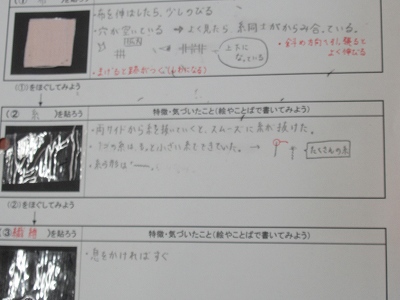 ・布を伸ばしたら、少しのびる
・穴が空いている → よく見たら、糸同士がからみ合っている。
上下になっている
(①)をほぐしてみよう
(② 糸 )を貼ろう
特徴・気づいたこと(絵やことばで書いてみよう)
・両サイドから糸を抜いていくと、スムーズに糸が抜けた。
・1つの糸は、もっと小さい糸でできていた。 →
たくさんの糸
・糸の形は
(②)をほぐしてみよう
(③ 繊維 )を貼ろう
特徴・気づいたこと(絵やことばで書いてみよう)
・息をかければすぐ